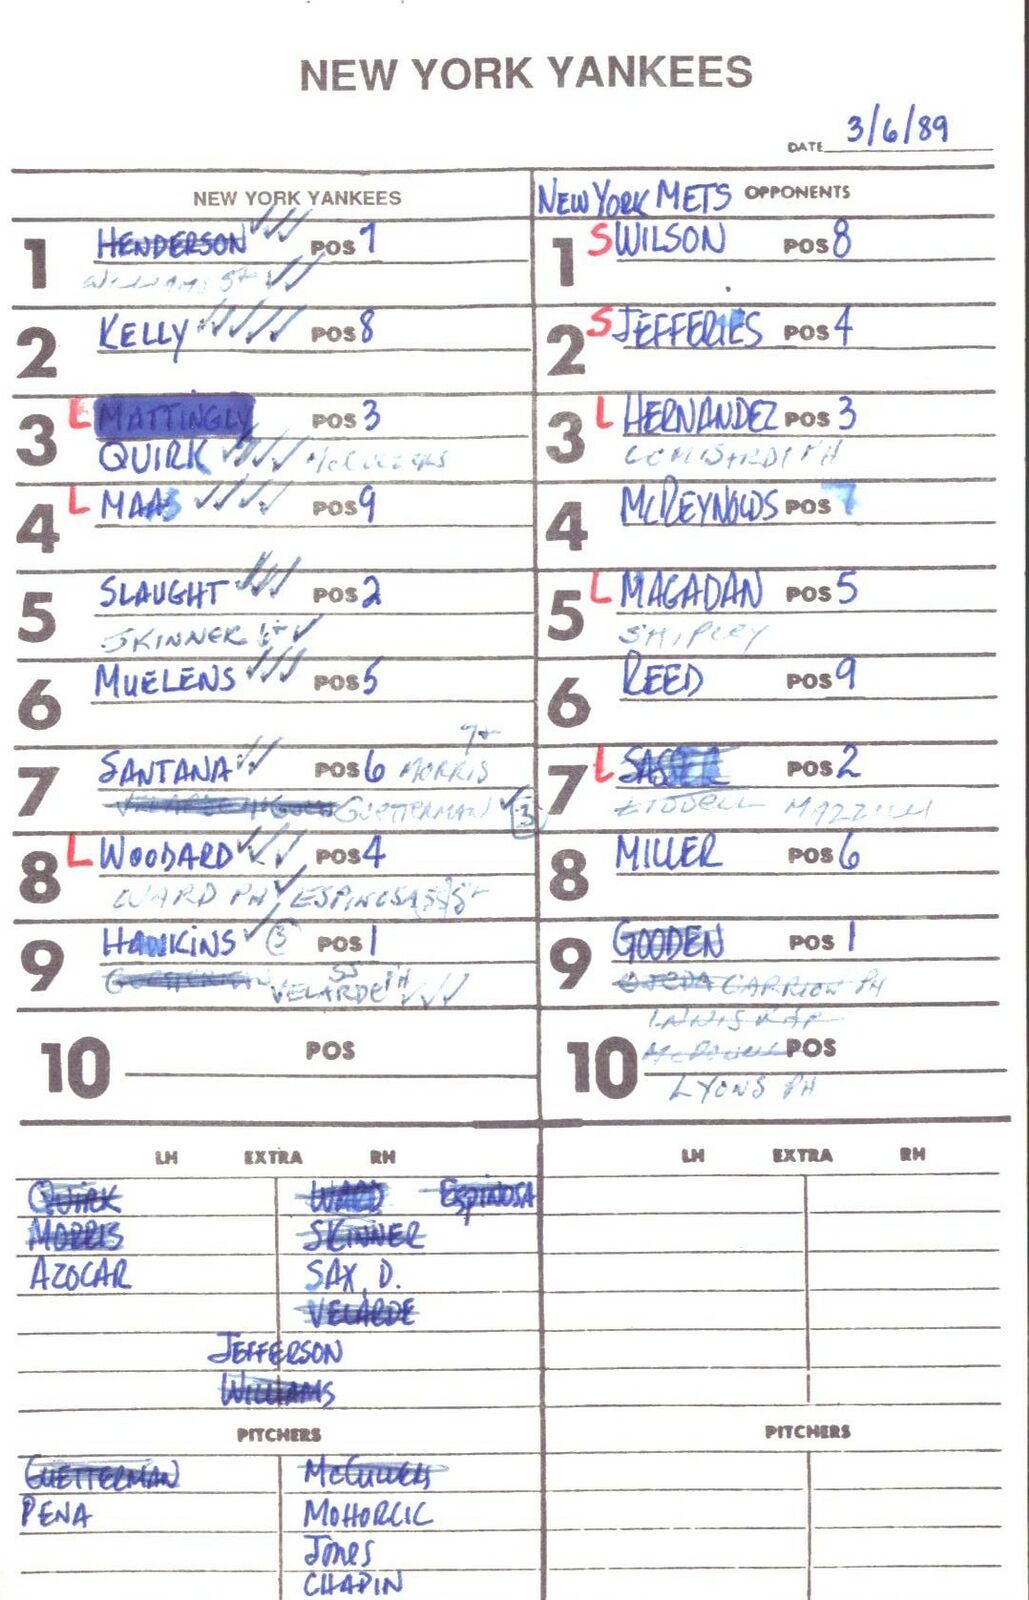 NEW YORK YANKEES
DATE 3/6/89
NEW YORK YANKEES
1 HENDERSON POS 7
WILLIAMS
2 KELLY POS 8
3 L MATTINGLY POS 3
QUIRK McCULLERS
4 L MAAS POS 9
5 SLAUGHT POS 2
SKINNER
6 MUELENS POS 5
7 SANTANA POS 6 MORRIS
GUETTERMAN 3
8 L WOODARD POS 4
WARD PH ESPINOSA
9 HAWKINS 3 POS 1
VELARDE PH SS
10 POS
NEW YORK METS OPPONENTS
1 S WILSON POS 8
2 S JEFFERIES POS 4
3 L HERNANDEZ POS 3
LOMBARDI PH
4 McREYNOLDS POS 7
5 L MAGADAN POS 5
SHIPLEY
6 REED POS 9
7 L SASSER POS 2
MAZZILLI
8 MILLER POS 6
9 GOODEN POS 1
OJEDA CARRION PH
INNIS
McDOWELL
10 POS
LYONS PH
LH EXTRA RH
QUIRK WARD ESPINOSA
MORRIS SKINNER
AZOCAR SAX, D.
VELARDE
JEFFERSON
WILLIAMS
PITCHERS
GUETTERMAN McCULLERS
PENA MOHORCIC
JONES
CHAPIN
LH EXTRA RH
PITCHERS